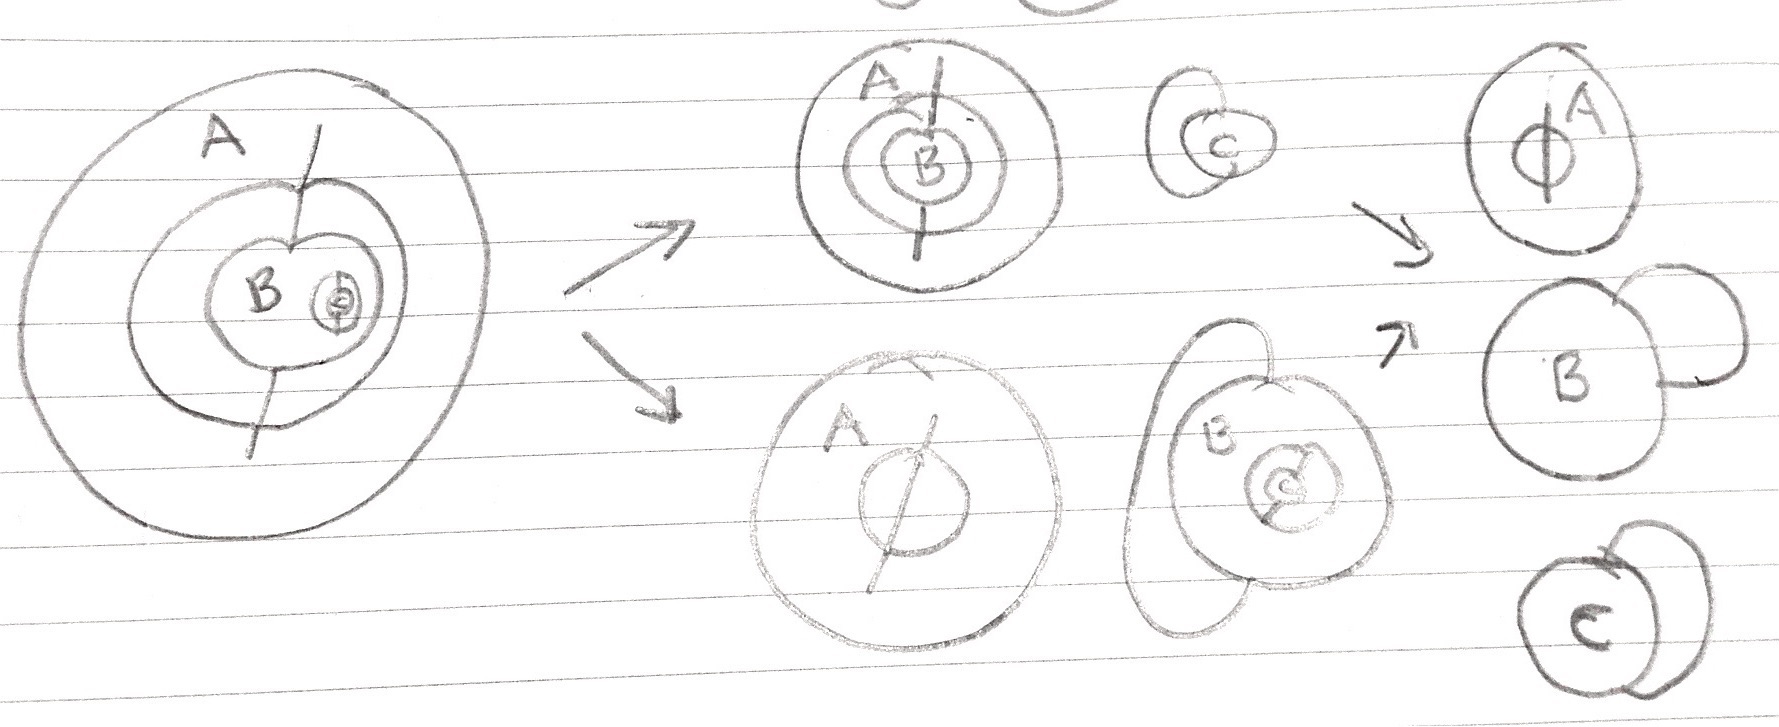 A
B
C
A
B
C
A
B
C
A
B
C